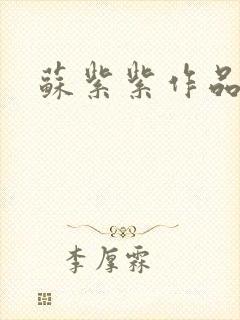 蘇紫紫作品
李厚霖